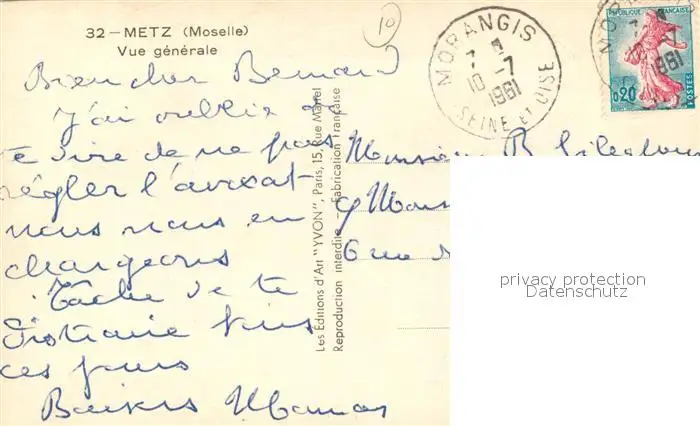 32 - METZ (Moselle)
Vue générale
10
MORANGIS
7
10 -7
1961
SEINE ET OISE
MO
10 -7
1961
REPUBLIQUE FRANÇAISE
0,20
POSTES
Bien cher Bernard
J'ai oublié de
te dire de ne pas
régler l'avocat
nous nous en
chargeons
Tâche de te
distraire
ces jours
Baisers Maman
Les Editions d'Art "YVON", Paris, 15, Rue Martel
Reproduction interdite - Fabrication Française
Monsieur B
6 rue
privacy protection
Datenschutz